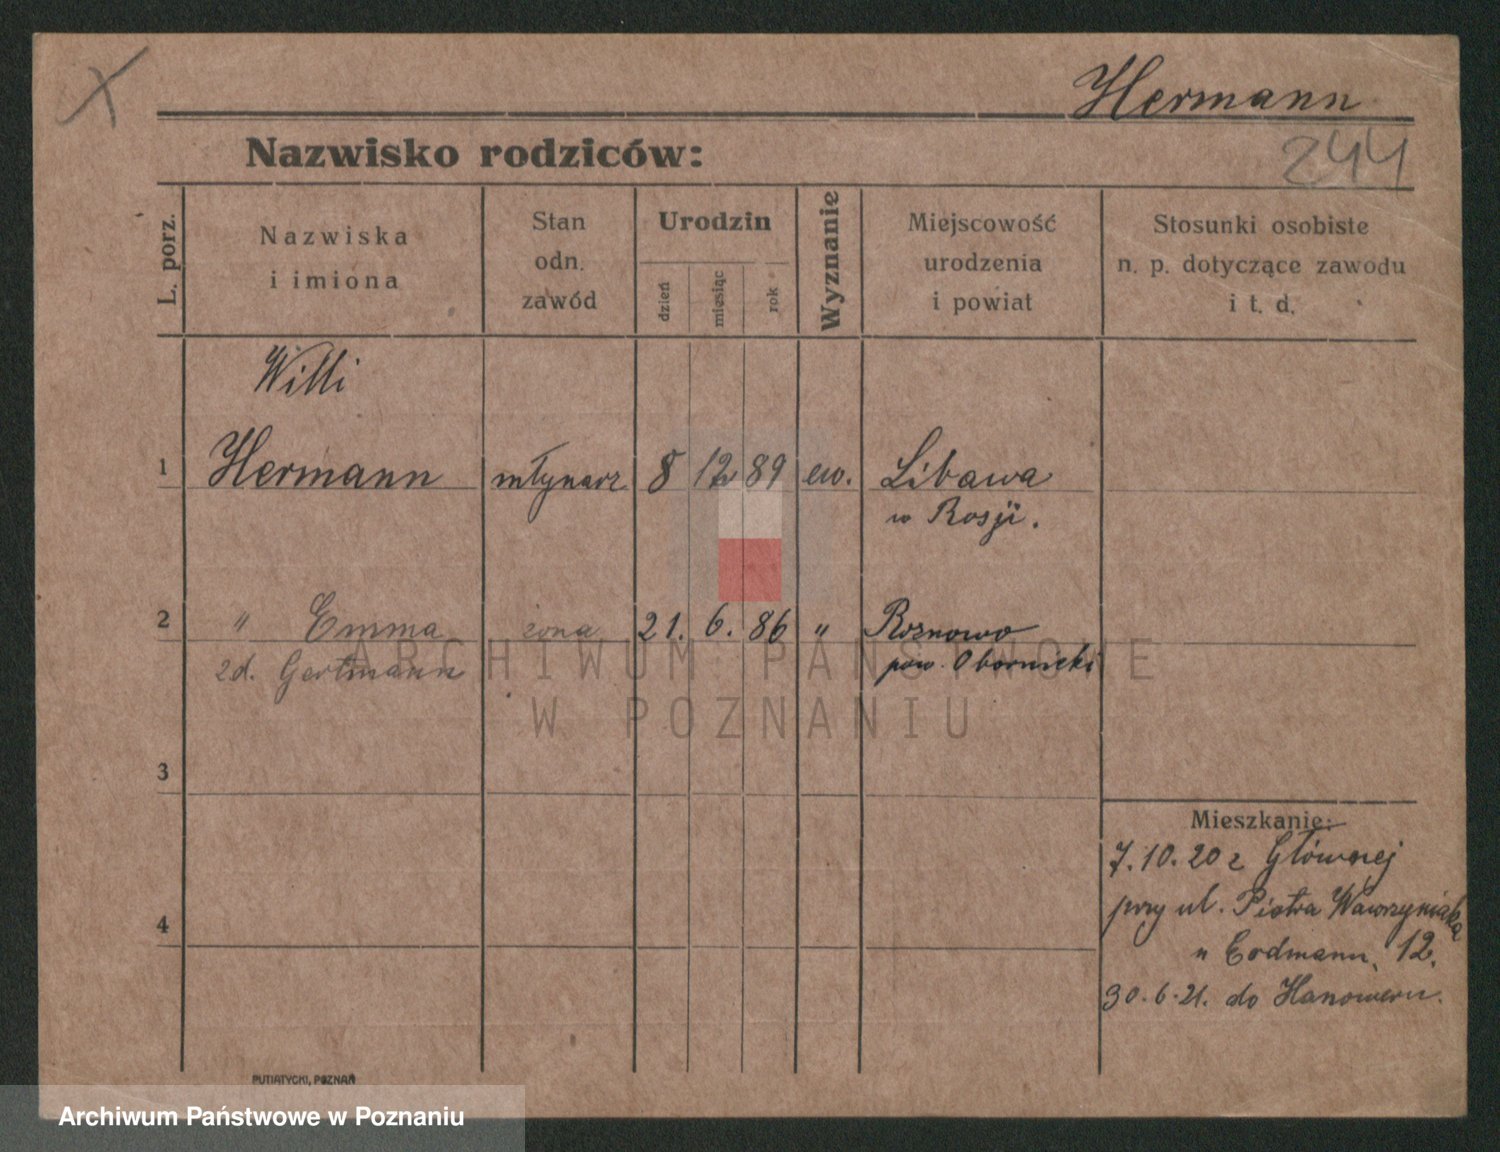 X
Hermann
Nazwisko rodziców:
244
L. porz.
Nazwiska
i imiona
Stan
odn.
zawód
Urodzin
dzień
miesiąc
rok
Wyznanie
Miejscowość
urodzenia
i powiat
Stosunki osobiste
n. p. dotyczące zawodu
i t. d.
Willi
1 Hermann młynarz 8 12 89 ew. Libawa
w Rosji.
2 " Emma żona 21. 6. 86 " Roznowo
zd. Gertmann pow. Obornicki
3
Mieszkanie:
7.10.20 z Głównej
4
przy ul. Piotra Wawrzyniaka
u Erdmann, 12.
30.6.21. do Hanoweru.
PUTIATYCKI, POZNAŃ
ARCHIWUM PAŃSTWOWE
W POZNANIU
Archiwum Państwowe w Poznaniu